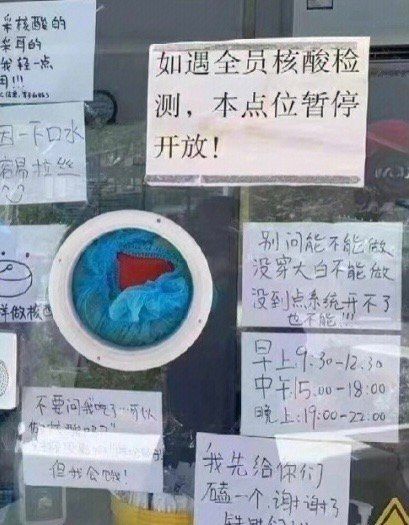 采核酸的
采耳的
我轻一点
用!!!
如遇全员核酸检
测,本点位暂停
开放!
因一下口水
容易拉丝
样做核
别问能不能做
没穿大白不能做
没到点系统开不了
也不能!!!
早上9:30-12:30
中午:15:00-18:00
晚上:19:00-22:00
不要问我吃了…可以
做核酸吗?
但我会饿!
我先给你们
磕一个,谢谢了